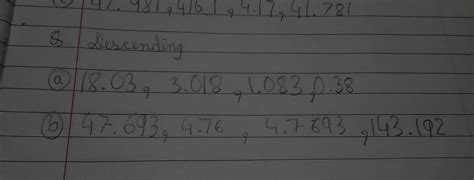 47.981, 416.1, 4.19, 41.781
Descending
(a) 18.03, 3.018, 1.083, 0.38
(b) 47.693, 4.76, 4.7693, 143.192